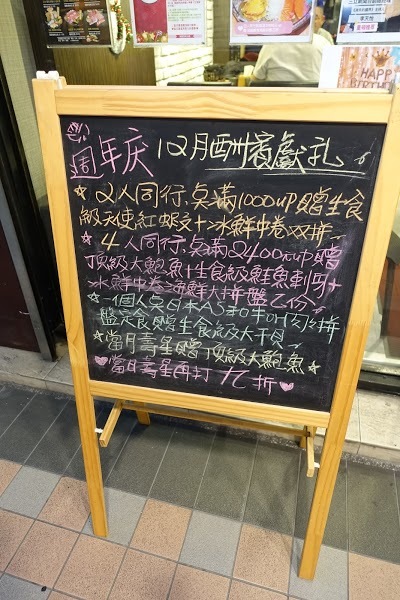 週年庆 12月酬賓獻礼
☆2人同行,点滿1000up贈生食
級天使紅蝦+冰鮮中卷双拼
☆4人同行,点滿2400元up贈
頂級大鮑魚+生食級鮭魚刺身+
冰鮮中卷海鮮大拼盤乙份
☆一個人点日本A5和牛肉拼
盤定食贈生食級大干貝
☆當月壽星贈頂級大鮑魚☆
♥當月壽星再打九折♥
HAPPY